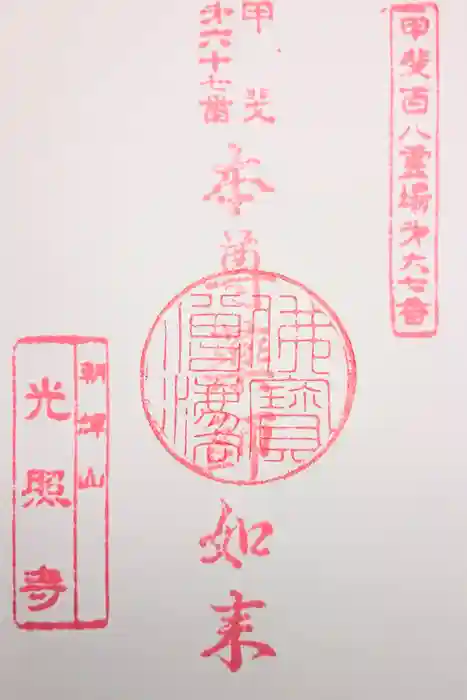 甲斐百八霊場第六七番
甲斐
第六十七番
本尊
如来
佛寶
朝山
光照寺